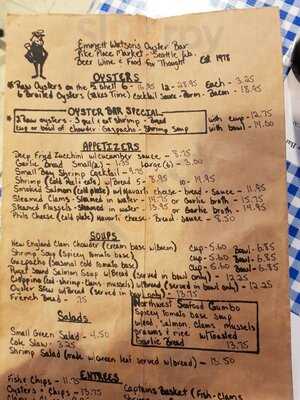 Emmett Watson's Oyster Bar
Pike Place Market - Seattle, Wa.
Beer Wine & Food for Thought Est 1978
OYSTERS
* Raw Oysters on the ½ Shell 6 - 16.95 12 - 28.95 Each - 3.25
* Broiled Oysters (Takes Time) Cocktail Sauce - Parm. - Bacon - 18.95
OYSTER BAR SPECIAL
* 3 Raw oysters - 3 grilled shrimp - Bread with cup - 12.75
Cup or bowl of chowder - Gaspacho - Shrimp Soup with bowl - 14.00
APPETIZERS
Deep Fryed Zucchini w/cucumber sauce - 8.75
Garlic Bread Small(2) - 1.35 Large(6) - 3.00
Small Bay Shrimp Cocktail - 9.75
Shrimp w/Bread 5 - 8.95 10 - 14.95
Smoked Salmon (cold plate) w/Havarti cheese - bread - Sauce - 11.95
Steamed Clams - Steamed in water - 14.75 or Garlic broth - 15.75
Steamed Mussels - Steamed in water - 13.95 or Garlic broth - 14.95
Phila Cheese (cold plate) Havarti Cheese - Bread Sauce - 8.25
SOUPS
New England Clam Chowder (cream base w/bacon) Cup - 5.60 Bowl - 6.85
Shrimp Soup (spicy tomato base) Cup - 5.60 Bowl - 6.85
Gazpacho (seasonal cold tomato base) Cup - 5.60 Bowl - 6.85
Puget Sound Salmon Soup w/Bread (served in bowl only) - 12.25
Cioppino (cod - shrimp - clams - mussels) w/Bread (served in bowl only) - 12.25
Oyster Stew w/Bread (served in bowl only) - 13.75
French Bread - .75
Northwest Seafood Gumbo
Spicy tomato base
w/cod, salmon, clams, mussels
prawns & rice w/Toasted
Garlic Bread 13.75
Salads
Small Green Salad - 4.50
Cole Slaw - 3.25
Shrimp Salad (made w/green leaf served w/bread) - 13.50
ENTREES
Fish & Chips - 11.75
Oysters & Chips - 13.75
Captains Basket (Fish - Clams